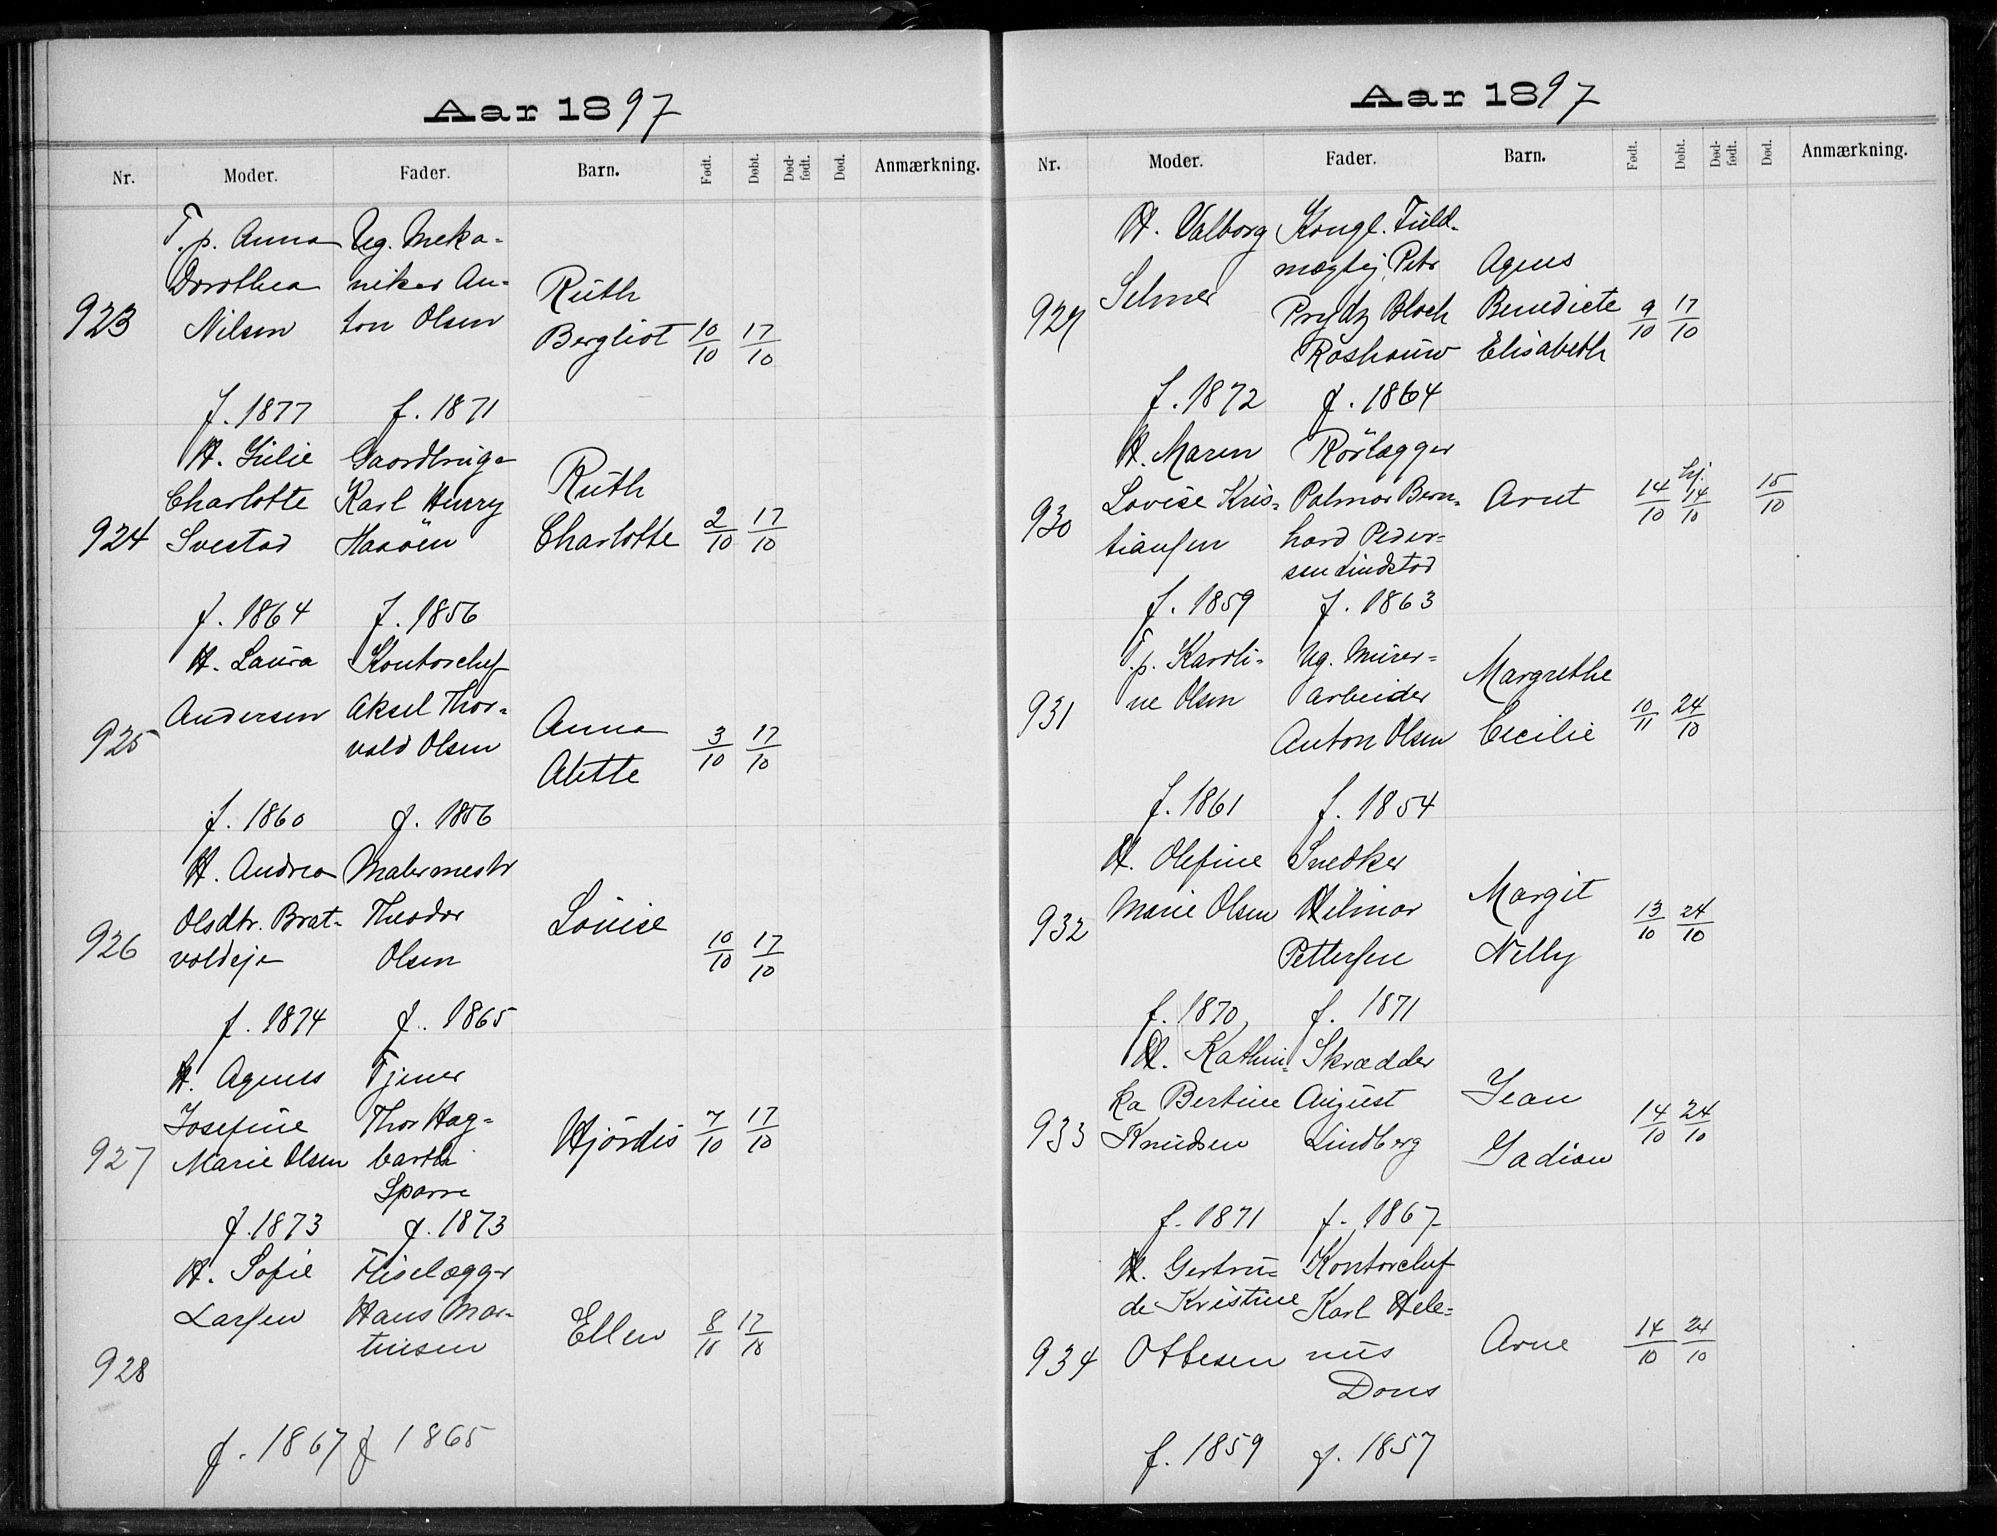 Aar 1897
Nr. Moder. Fader. Barn. Født. Døbt. Død-født. Død. Anmærkning.
923
T. p. Anna
Dorothea
Nilsen
f. 1877
Ug. Meka-
niker An-
ton Olsen
f. 1871
Ruth
Bergliot
10/10 17/10
924
H. Julie
Charlotte
Svestad
f. 1864
Gaardbruger
Karl Henry
f. 1856
Ruth
Charlotte
2/10 17/10
925
H. Laura
Andersen
f. 1860
Kontorchef
Aksel Thor-
vald Olsen
f. 1856
Anna
Alette
3/10 17/10
926
H. Andrea
Olsdtr. Brat-
voldeje
f. 1874
Malermestr
Theodor
Olsen
f. 1865
Louise
10/10 17/10
927
H. Agnes
Josefine
Marie Olsen
f. 1873
Tjener
Thor Hag-
barth
Sparre
f. 1873
Hjördis
7/10 17/10
928
H. Sofie
Larsen
f. 1867
Fliselægger
Hans Mar-
tinsen
f 1865
Ellen
8/10 17/10
Aar 1897
Nr. Moder. Fader. Barn. Født. Døbt. Død-født. Død. Anmærkning.
929
H. Valborg
Selmer
f. 1872
Kongl. Fuld-
mægtig Petr
Prydz Bloch
Roshauw
f. 1864
Agnes
Benedicte
Elisabeth
9/10 17/10
930
H. Maren
Lovise Kris-
tiansen
f. 1859
Rörlægger
Palmar Bern-
hard Peder-
sen Lindstad
f. 1863
Arnt
14/10 hj. 14/10 15/10
931
T. p. Karoli-
ne Olsen
f. 1861
Ug. Murer-
arbeider
Anton Olsen
f. 1854
Margrethe
Cecilie
10/11 24/10
932
H. Olefine
Marie Olsen
f. 1870
Snedker
Hilmar
Pettersen
f. 1871
Margit
Nelly
13/10 24/10
933
H. Kathin-
ka Bertine
Knudsen
f. 1871
Skrædder
August
Lindberg
f. 1867
Jean
Gadian
14/10 24/10
934
H. Gertru-
de Kristine
Ottesen
f. 1859
Kontorchef
Karl Hele-
nus
Dons
f. 1857
Arne
14/10 24/10